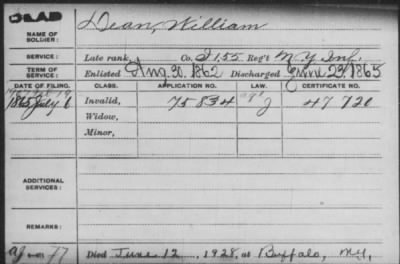 DEAD
Dean, William
NAME OF SOLDIER:
SERVICE: Late rank, Co. I 155 Reg't N.Y. Inf.
TERM OF SERVICE: Enlisted Aug. 30, 1862 Discharged June 23, 1865
DATE OF FILING. CLASS. APPLICATION NO. LAW. CERTIFICATE NO.
1865 July 6 Invalid, 75834 47720
Widow,
Minor,
ADDITIONAL SERVICES:
REMARKS:
Died June 12, 1928, at Buffalo, N.Y.